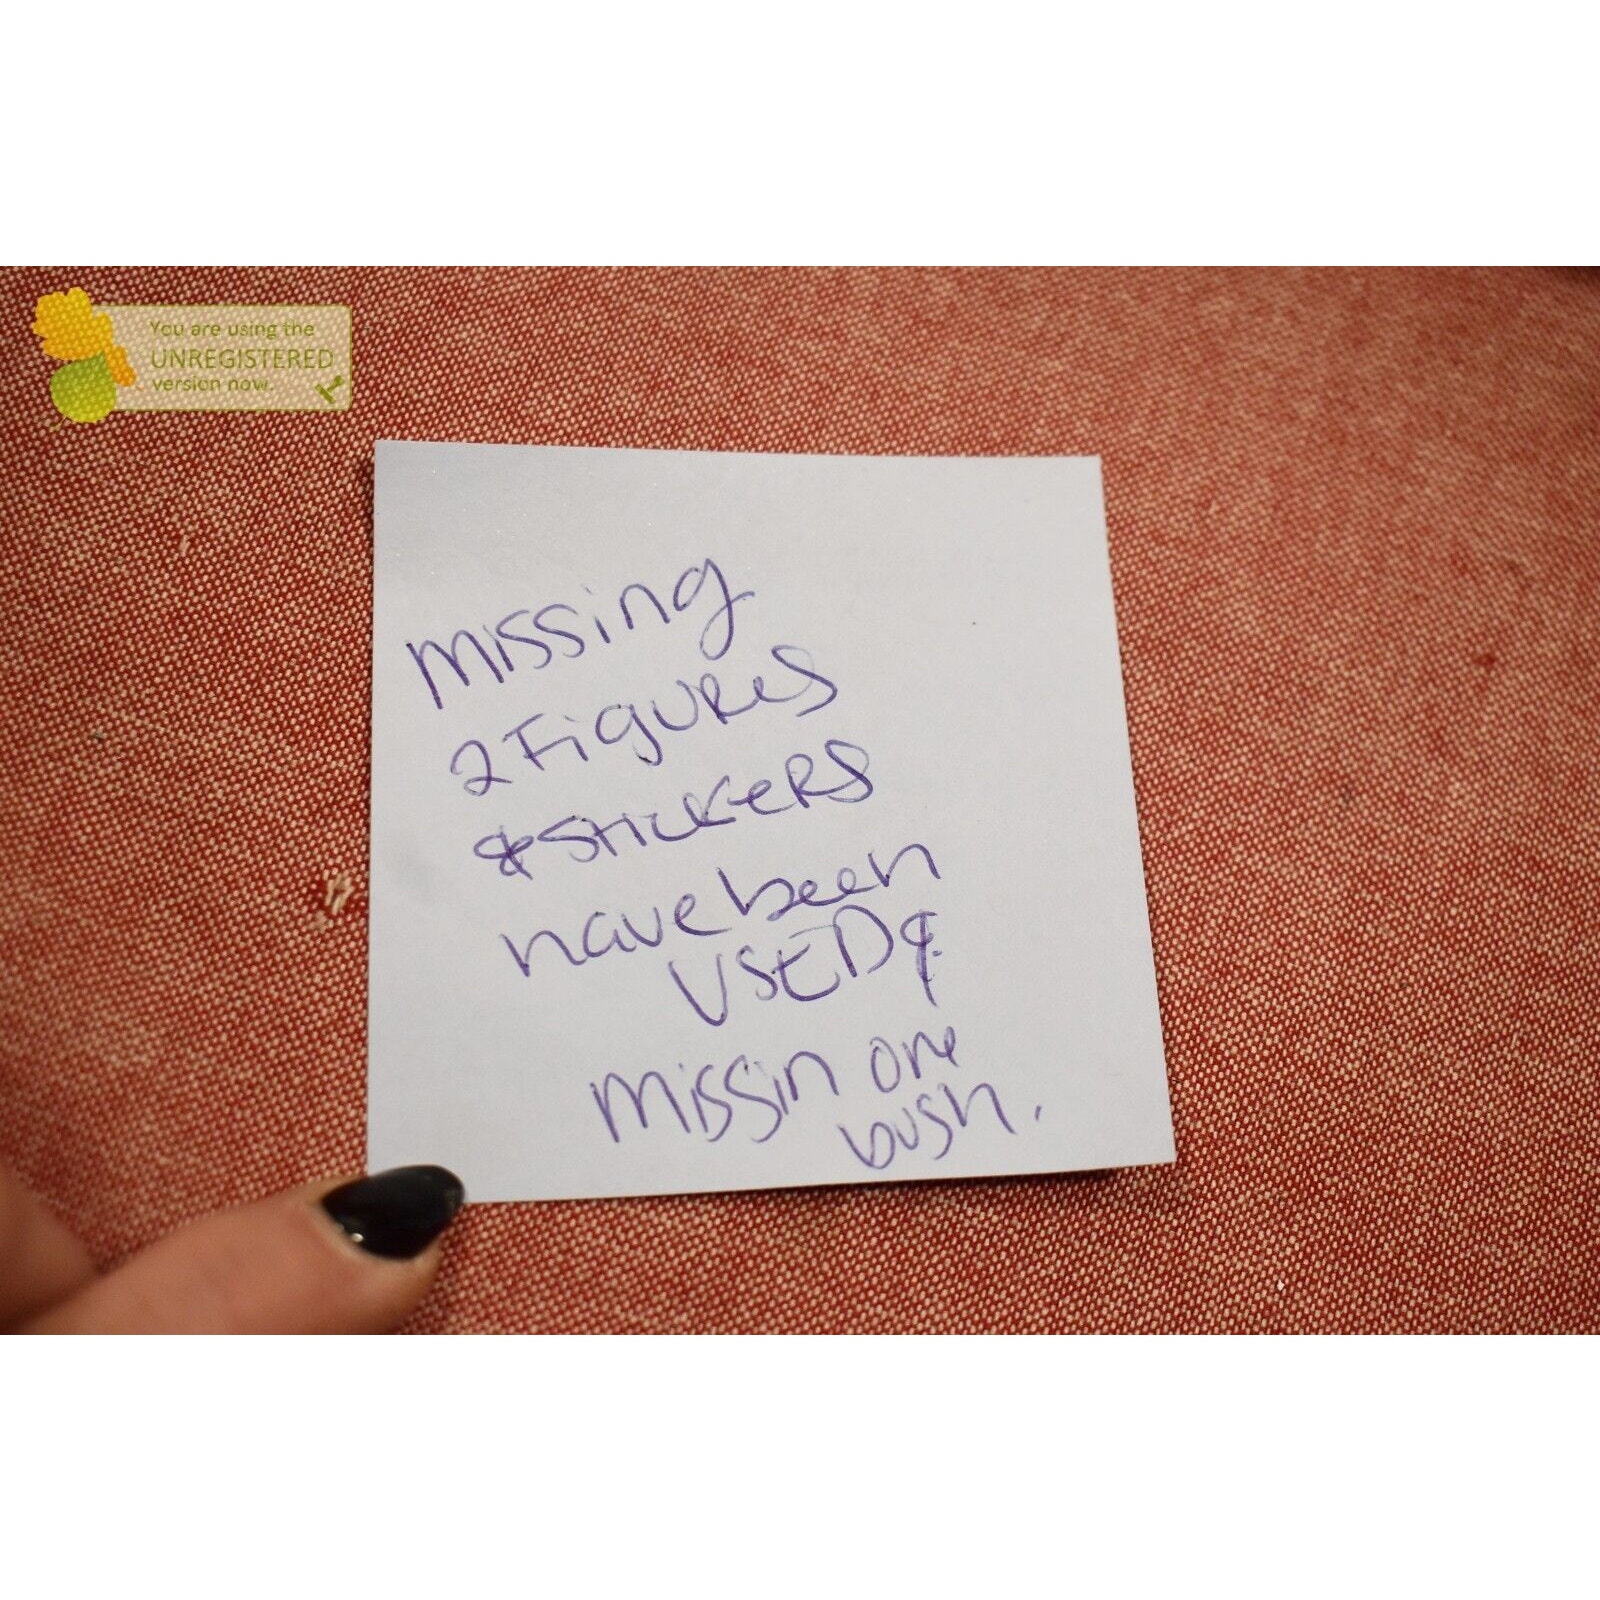 You are using the
UNREGISTERED
version now.
missing
2 Figures
& stickers
have been
USED &
missin one
bush.